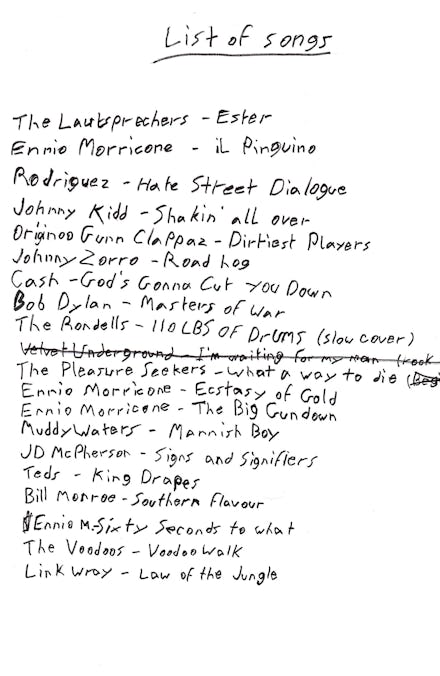 List of songs
The Lautsprechers - Ester
Ennio Morricone - iL Pinguino
Rodriguez - Hate Street Dialogue
Johnny Kidd - Shakin' all over
Originoo Gunn Clappaz - Dirtiest Players
Johnny Zorro - Road hog
Cash - God's Gonna Cut you Down
Bob Dylan - Masters of War
The Rondells - 110 LBS OF DRUMS (slow cover)
Velvet Underground - I'm waiting for my man (rock
The Pleasure Seekers - What a way to die (Beg
Ennio Morricone - Ecstasy of Gold
Ennio Morricone - The Big Gundown
Muddy Waters - Mannish Boy
JD McPherson - Signs and Signifiers
Teds - King Drapes
Bill Monroe - Southern Flavour
Ennio M. - Sixty Seconds to what
The Voodoos - Voodoo Walk
Link Wray - Law of the Jungle